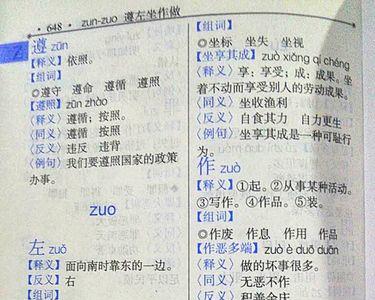 ·648· zun-zuo 遵左坐作做
遵 zūn
【释义】依照。
【组词】
◎遵守 遵命 遵循 遵照
【遵照】zūn zhào
〈释义〉遵循;按照。
〈同义〉遵循 按照
〈反义〉违反 违背
〈例句〉我们要遵照国家的政策
办事。
zuo
左 zuǒ
【释义】面向南时靠东的一边。
〈反义〉右
【组词】
◎坐标 坐失 坐视
【坐享其成】zuò xiǎng qí chéng
〈释义〉享;享受;成;成果。坐
着不动而享受别人的劳动成果。
〈同义〉坐收渔利
〈反义〉自食其力 自力更生
〈例句〉坐享其成是一种可耻行
为。
作 zuò
【释义】①起。②从事某种活动。
③写作。④作品。⑤装。
【组词】
◎作废 作息 作用 作品
【作恶多端】zuò è duō duān
〈释义〉做的坏事很多。
〈同义〉无恶不作
〈反义〉积善余庆